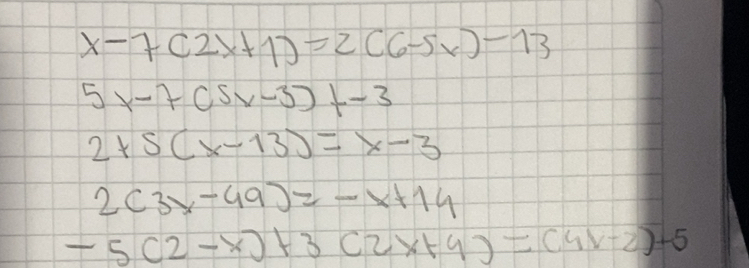 x-7(2x+1)=2(6-5x)-13
5x-7(5x-3)+-3
2+5(x-13)=x-3
2(3x-49)=-x+14
-5(2-x)+3(2x+4)=(4x-2)-5